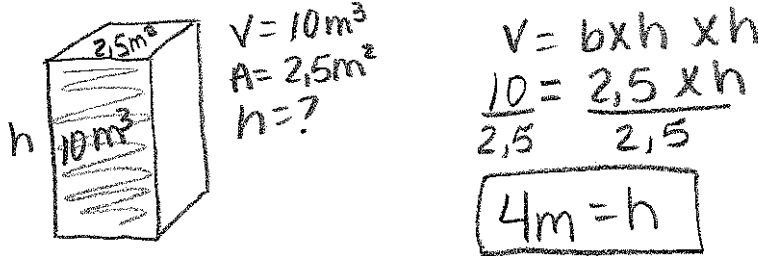 2,5m²
h
10m³
V = 10m³
A = 2,5m²
h = ?
V = b x h x h
10 = 2,5 x h
2,5 2,5
4m = h